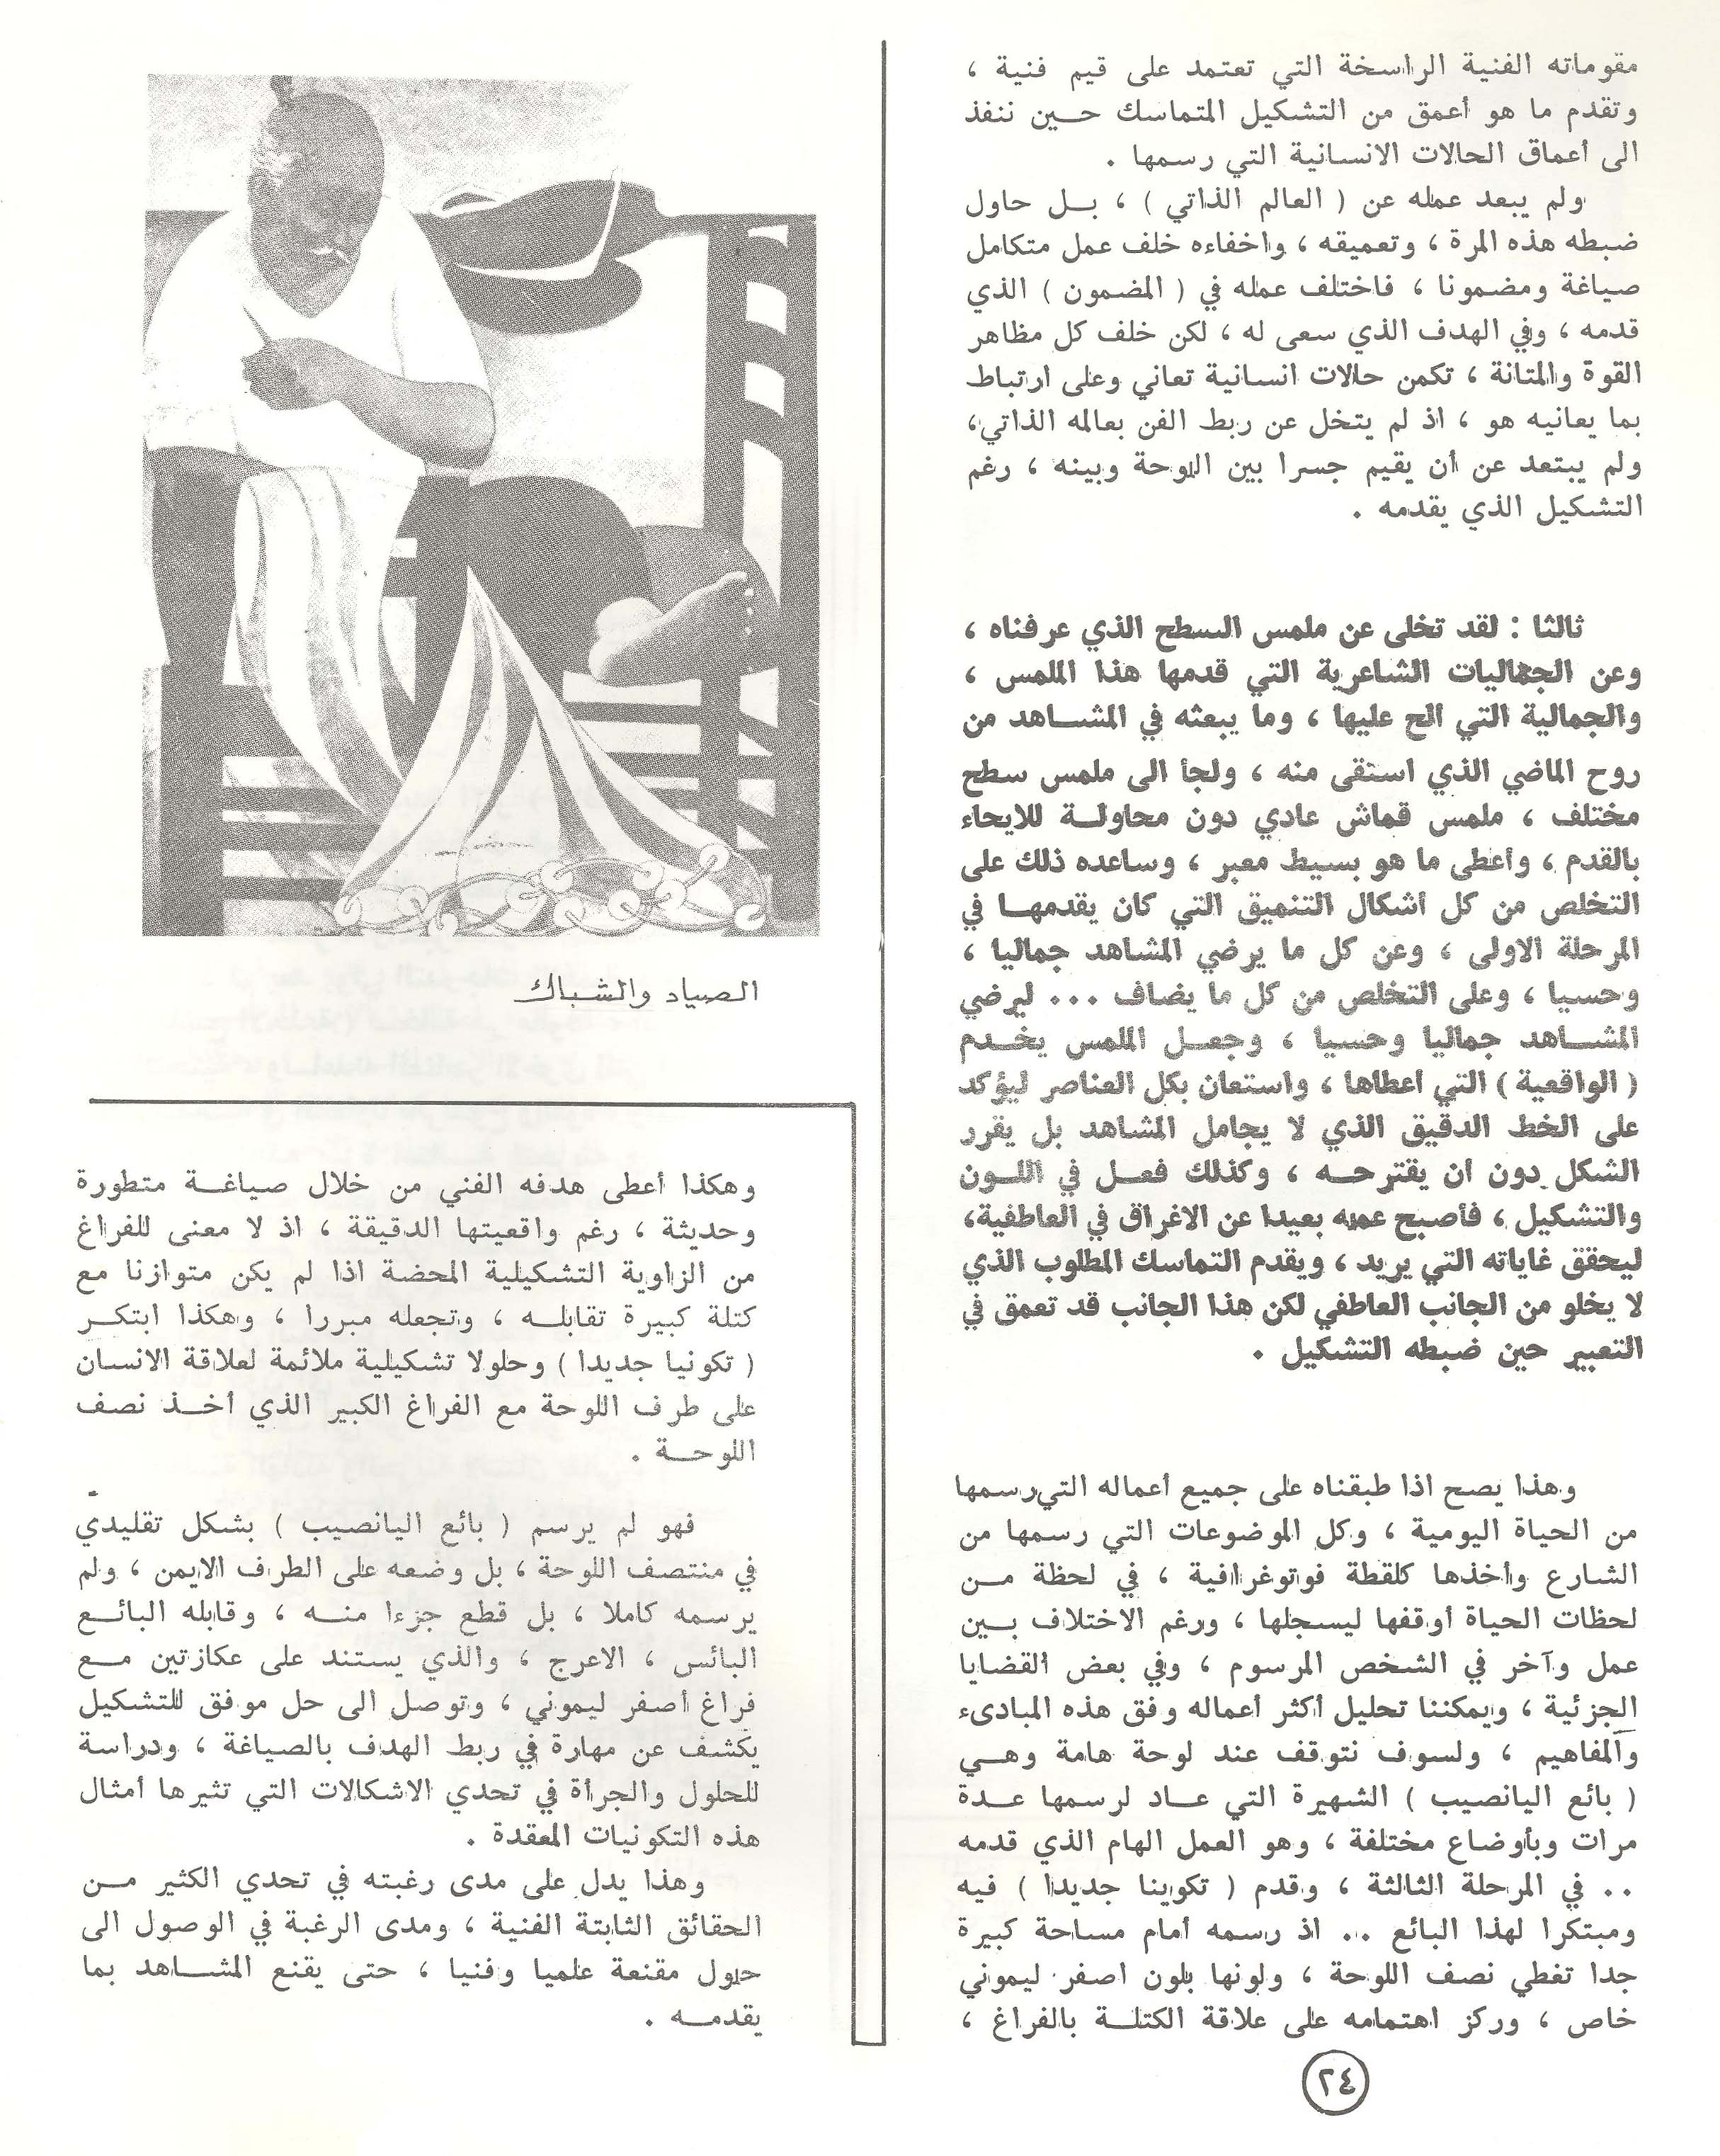 مقوماته الفنية الراسخة التي تعتمد على قيم فنية ،
وتقدم ما هو أعمق من التشكيل المتماسك حـــين ننفذ
الى أعماق الحالات الانسانية التي رسمها .
ولم يبعد عمله عن ( العالم الذاتي ) ، بــل حاول
ضبطه هذه المرة ، وتعميقه ، واخفاءه خلف عمل متكامل
صياغة ومضمونا ، فاختلف عمله في ( المضمون ) الذي
قدمه ، وفي الهدف الذي سعى له ، لكن خلف كل مظاهر
القوة والمتانة ، تكمن حالات انسانية تعاني وعلى ارتباط
بما يعانيه هو ، اذ لم يتخل عن ربط الفن بعالمه الذاتي،
ولم يبتعد عن أن يقيم جسرا بين اللوحة وبينه ، رغم
التشكيل الذي يقدمه .
ثالثا : لقد تخلى عن ملمس السطح الذي عرفناه ،
وعن الجماليات الشاعرية التي قدمها هذا الملمس ،
والجمالية التي الح عليها ، وما يبعثه في المشـــاهد من
روح الماضي الذي استقى منه ، ولجأ الى ملمس سطح
مختلف ، ملمس قماش عادي دون محاولـــة للايحاء
بالقدم ، وأعطى ما هو بسيط معبر ، وساعده ذلك على
التخلص من كل أشكال التنميق التي كان يقدمهـــا في
المرحلة الاولى ، وعن كل ما يرضي المشاهد جماليا ،
وحسيا ، وعلى التخلص من كل ما يضاف ... ليرضي
المشـــاهد جماليا وحسيا ، وجعـــل الملمس يخـــدم
( الواقعية ) التي أعطاها ، واستعان بكل العناصر ليؤكد
على الخط الدقيق الذي لا يجامل المشاهد بل يقرر
الشكل دون أن يقترحـــه ، وكذلك فعـــل في اللـــون
والتشكيل ، فأصبح عمله بعيدا عن الاغراق في العاطفية،
ليحقق غاياته التي يريد ، ويقدم التماسك المطلوب الذي
لا يخلو من الجانب العاطفي لكن هذا الجانب قد تعمق في
التعبير حين ضبطه التشكيل .
وهذا يصح اذا طبقناه على جميع أعماله التي رسمها
من الحياة اليومية ، وكل الموضوعات التي رسمها من
الشارع وأخذها كلقطة فوتوغرافية ، في لحظة مـــن
لحظات الحياة أوقفها ليسجلها ، ورغم الاختلاف بـــين
عمل وآخر في الشخص المرسوم ، وفي بعض القضايا
الجزئية ، ويمكننا تحليل أكثر أعماله وفق هذه المبادىء
والمفاهيم ، ولسوف نتوقف عند لوحة هامة وهـــي
( بائع اليانصيب ) الشهيرة التي عـــاد لرسمها عـــدة
مرات وبأوضاع مختلفة ، وهو العمل الهام الذي قدمه
.. في المرحلة الثالثة ، وقدم ( تكوينا جديدا ) فيه
ومبتكرا لهذا البائع .. اذ رسمه أمام مساحة كبيرة
جدا تغطي نصف اللوحة ، ولونها بلون اصفر ليموني
خاص ، وركز اهتمامه على علاقة الكتلـــة بالفراغ ،
الصياد والشباك
وهكذا أعطى هدفه الفني من خلال صياغـــة متطورة
وحديثة ، رغم واقعيتها الدقيقة ، اذ لا معنى للفراغ
من الزاوية التشكيلية المحضة اذا لم يكن متوازنا مع
كتلة كبيرة تقابلـــه ، وتجعله مبررا ، وهكذا ابتكـــر
( تكونيا جديدا ) وحلولا تشكيلية ملائمة لعلاقة الانسان
على طرف اللوحة مع الفراغ الكبير الذي أخـــذ نصف
اللوحـــة .
فهو لم يرسم ( بائع اليانصيب ) بشكل تقليدي
في منتصف اللوحة ، بل وضعه على الطرف الايمن ، ولم
يرسمه كاملا ، بل قطع جزءا منـــه ، وقابله البائـــع
البائس ، الاعرج ، والذي يستند على عكازتين مـــع
فراغ أصفر ليموني ، وتوصل الى حل موفق للتشكيل
يكشف عن مهارة في ربط الهدف بالصياغة ، ودراسة
للحلول والجرأة في تحدي الاشكالات التي تثيرها أمثال
هذه التكونيات المعقدة .
وهذا يدل على مدى رغبته في تحدي الكثير مـــن
الحقائق الثابتة الفنية ، ومدى الرغبة في الوصول الى
حلول مقنعة علميا وفنيا ، حتى يقنع المشـــاهد بما
يقدمـــه .
٢٤